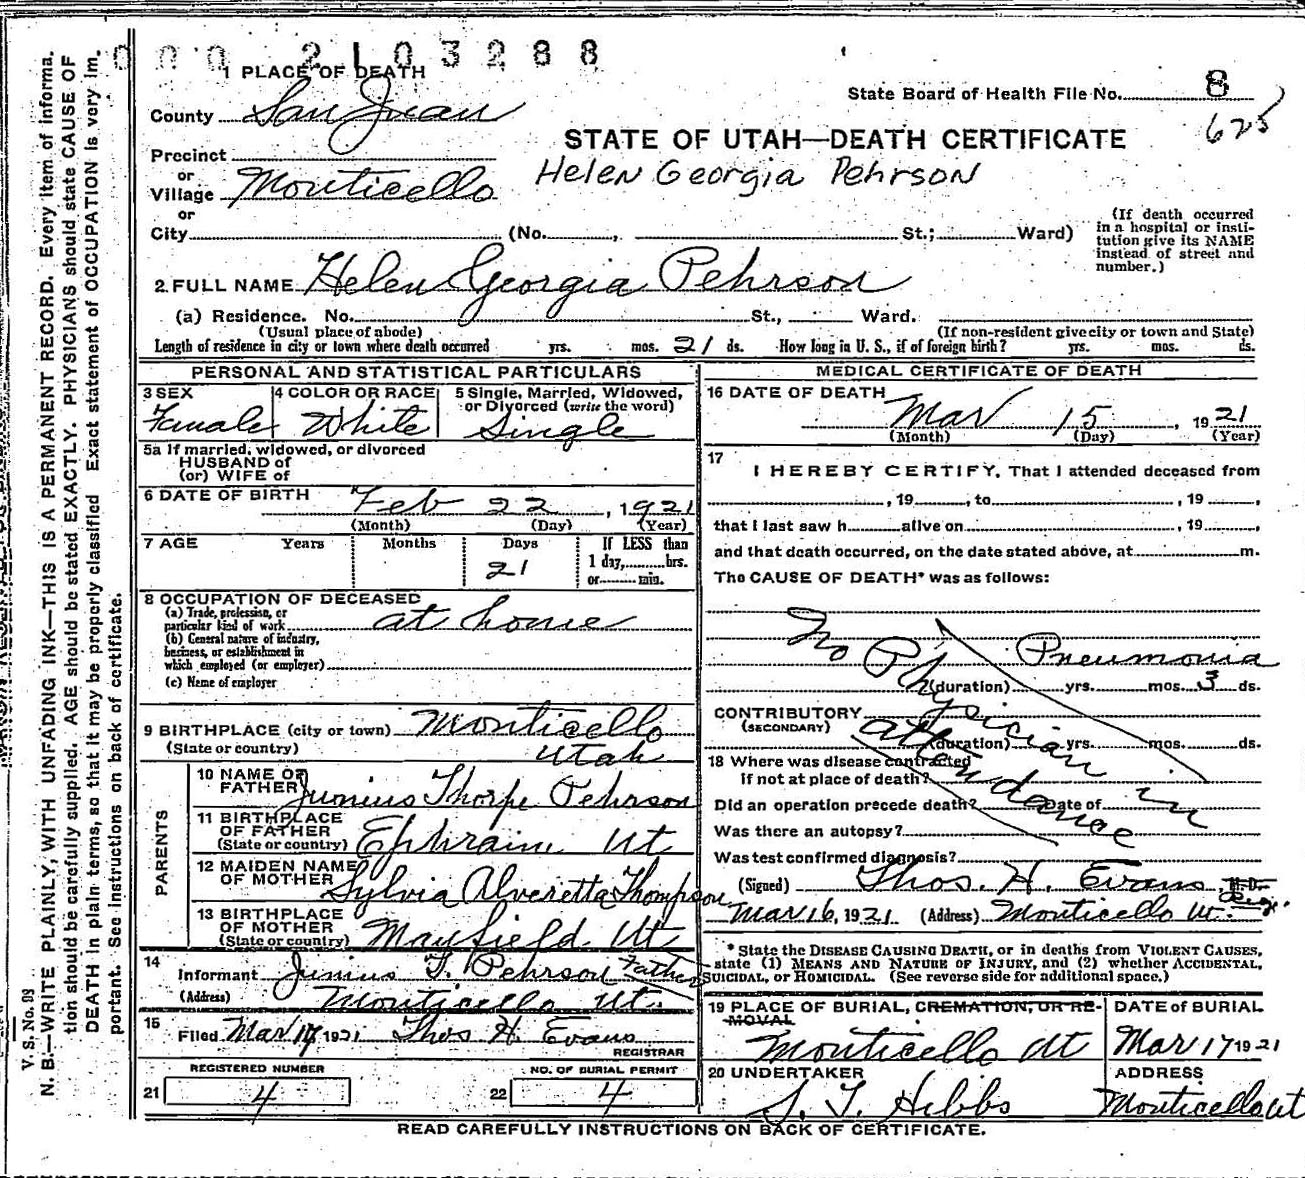 000 2103288
1 PLACE OF DEATH
State Board of Health File No. 8
625
County San Juan
STATE OF UTAH—DEATH CERTIFICATE
Helen Georgia Pehrson
Precinct
or
Village Monticello
or
City (No. , St.; Ward)
(If death occurred
in a hospital or insti-
tution give its NAME
instead of street and
number.)
2 FULL NAME Helen Georgia Pehrson
(a) Residence. No. St., Ward.
(Usual place of abode) (If non-resident give city or town and State)
Length of residence in city or town where death occurred yrs. mos. 21 ds. How long in U. S., if of foreign birth? yrs. mos. ds.
PERSONAL AND STATISTICAL PARTICULARS
3 SEX
Female
4 COLOR OR RACE
White
5 Single, Married, Widowed,
or Divorced (write the word)
Single
5a If married, widowed, or divorced
HUSBAND of
(or) WIFE of
6 DATE OF BIRTH Feb 22, 1921
(Month) (Day) (Year)
7 AGE Years Months Days If LESS than
21 1 day,........hrs.
or........min.
8 OCCUPATION OF DECEASED
(a) Trade, profession, or
particular kind of work at home
(b) General nature of industry,
business, or establishment in
which employed (or employer)
(c) Name of employer
9 BIRTHPLACE (city or town) Monticello
(State or country) Utah
PARENTS
10 NAME OF
FATHER Junius Thorpe Pehrson
11 BIRTHPLACE
OF FATHER
(State or country) Ephraim Ut
12 MAIDEN NAME
OF MOTHER Sylvia Alveretta Thompson
13 BIRTHPLACE
OF MOTHER
(State or country) Mayfield Ut
14
Informant Junius T. Pehrson Father
(Address) Monticello Ut.
15
Filed Mar 17 1921 Thos H. Evans
REGISTRAR
REGISTERED NUMBER NO. OF BURIAL PERMIT
21 4 22 4
MEDICAL CERTIFICATE OF DEATH
16 DATE OF DEATH
Mar 15, 1921
(Month) (Day) (Year)
17
I HEREBY CERTIFY, That I attended deceased from
, 19 , to , 19 ,
that I last saw h alive on , 19 ,
and that death occurred, on the date stated above, at m.
The CAUSE OF DEATH* was as follows:
No Physician in
attendance
Pneumonia
(duration) yrs. mos. 3 ds.
CONTRIBUTORY
(SECONDARY)
(duration) yrs. mos. ds.
18 Where was disease contracted
if not at place of death?
Did an operation precede death? Date of
Was there an autopsy?
Was test confirmed diagnosis?
(Signed) Thos. H. Evans, M.D.
Reg.
Mar 16, 1921 (Address) Monticello Ut.
* State the DISEASE CAUSING DEATH, or in deaths from VIOLENT CAUSES,
state (1) MEANS AND NATURE OF INJURY, and (2) whether ACCIDENTAL,
SUICIDAL, or HOMICIDAL. (See reverse side for additional space.)
19 PLACE OF BURIAL, CREMATION, OR RE-
MOVAL
Monticello Ut
DATE of BURIAL
Mar 17 1921
20 UNDERTAKER
S. T. Hibbs
ADDRESS
Monticello Ut
READ CAREFULLY INSTRUCTIONS ON BACK OF CERTIFICATE.
V. S. No. 99
N. B.—WRITE PLAINLY, WITH UNFADING INK—THIS IS A PERMANENT RECORD. Every item of informa-
tion should be carefully supplied. AGE should be stated EXACTLY. PHYSICIANS should state CAUSE OF
DEATH in plain terms, so that it may be properly classified. Exact statement of OCCUPATION is very im-
portant. See instructions on back of certificate.